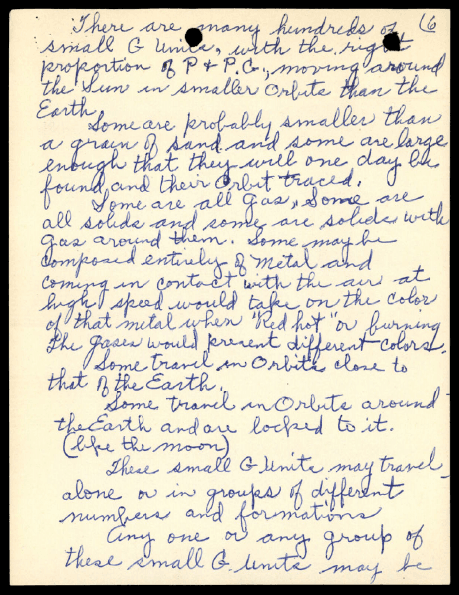 There are many hundreds of (6
small G Units, with the right
proportion of P + P.G., moving around
the Sun in smaller Orbits than the
Earth.
Some are probably smaller than
a grain of sand and some are large
enough that they will one day be
found and their Orbit traced.
Some are all Gas, Some are
all solids and some are solids with
Gas around them. Some may be
composed entirely of Metal and
coming in contact with the air at
high speed would take on the color
of that metal when "Red hot" or burning
The gases would present different colors.
Some travel in Orbits close to
that of the Earth.
Some travel in Orbits around
the Earth and are locked to it.
(like the moon)
These small G Units may travel
alone or in groups of different
numbers and formations
Any one or any group of
these small G. Units may be